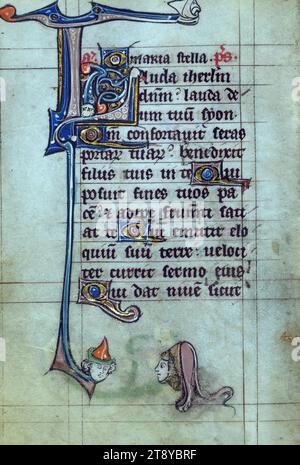 a. O maria stella. ps.
Lauda iherlm
dn̄m: lauda de
um tuū syon
Qm̄ confortavit seras
portaꝝ tuaꝝ: benedixit
filiis tuis in te Qui
posuit fines tuos pa
cē: & adipe frumti sati
at te Qui emittit elo
quiū suū terre: veloci
ter currit sermo eius
Qui dat nivē sicut
alamy
2T8YBRF